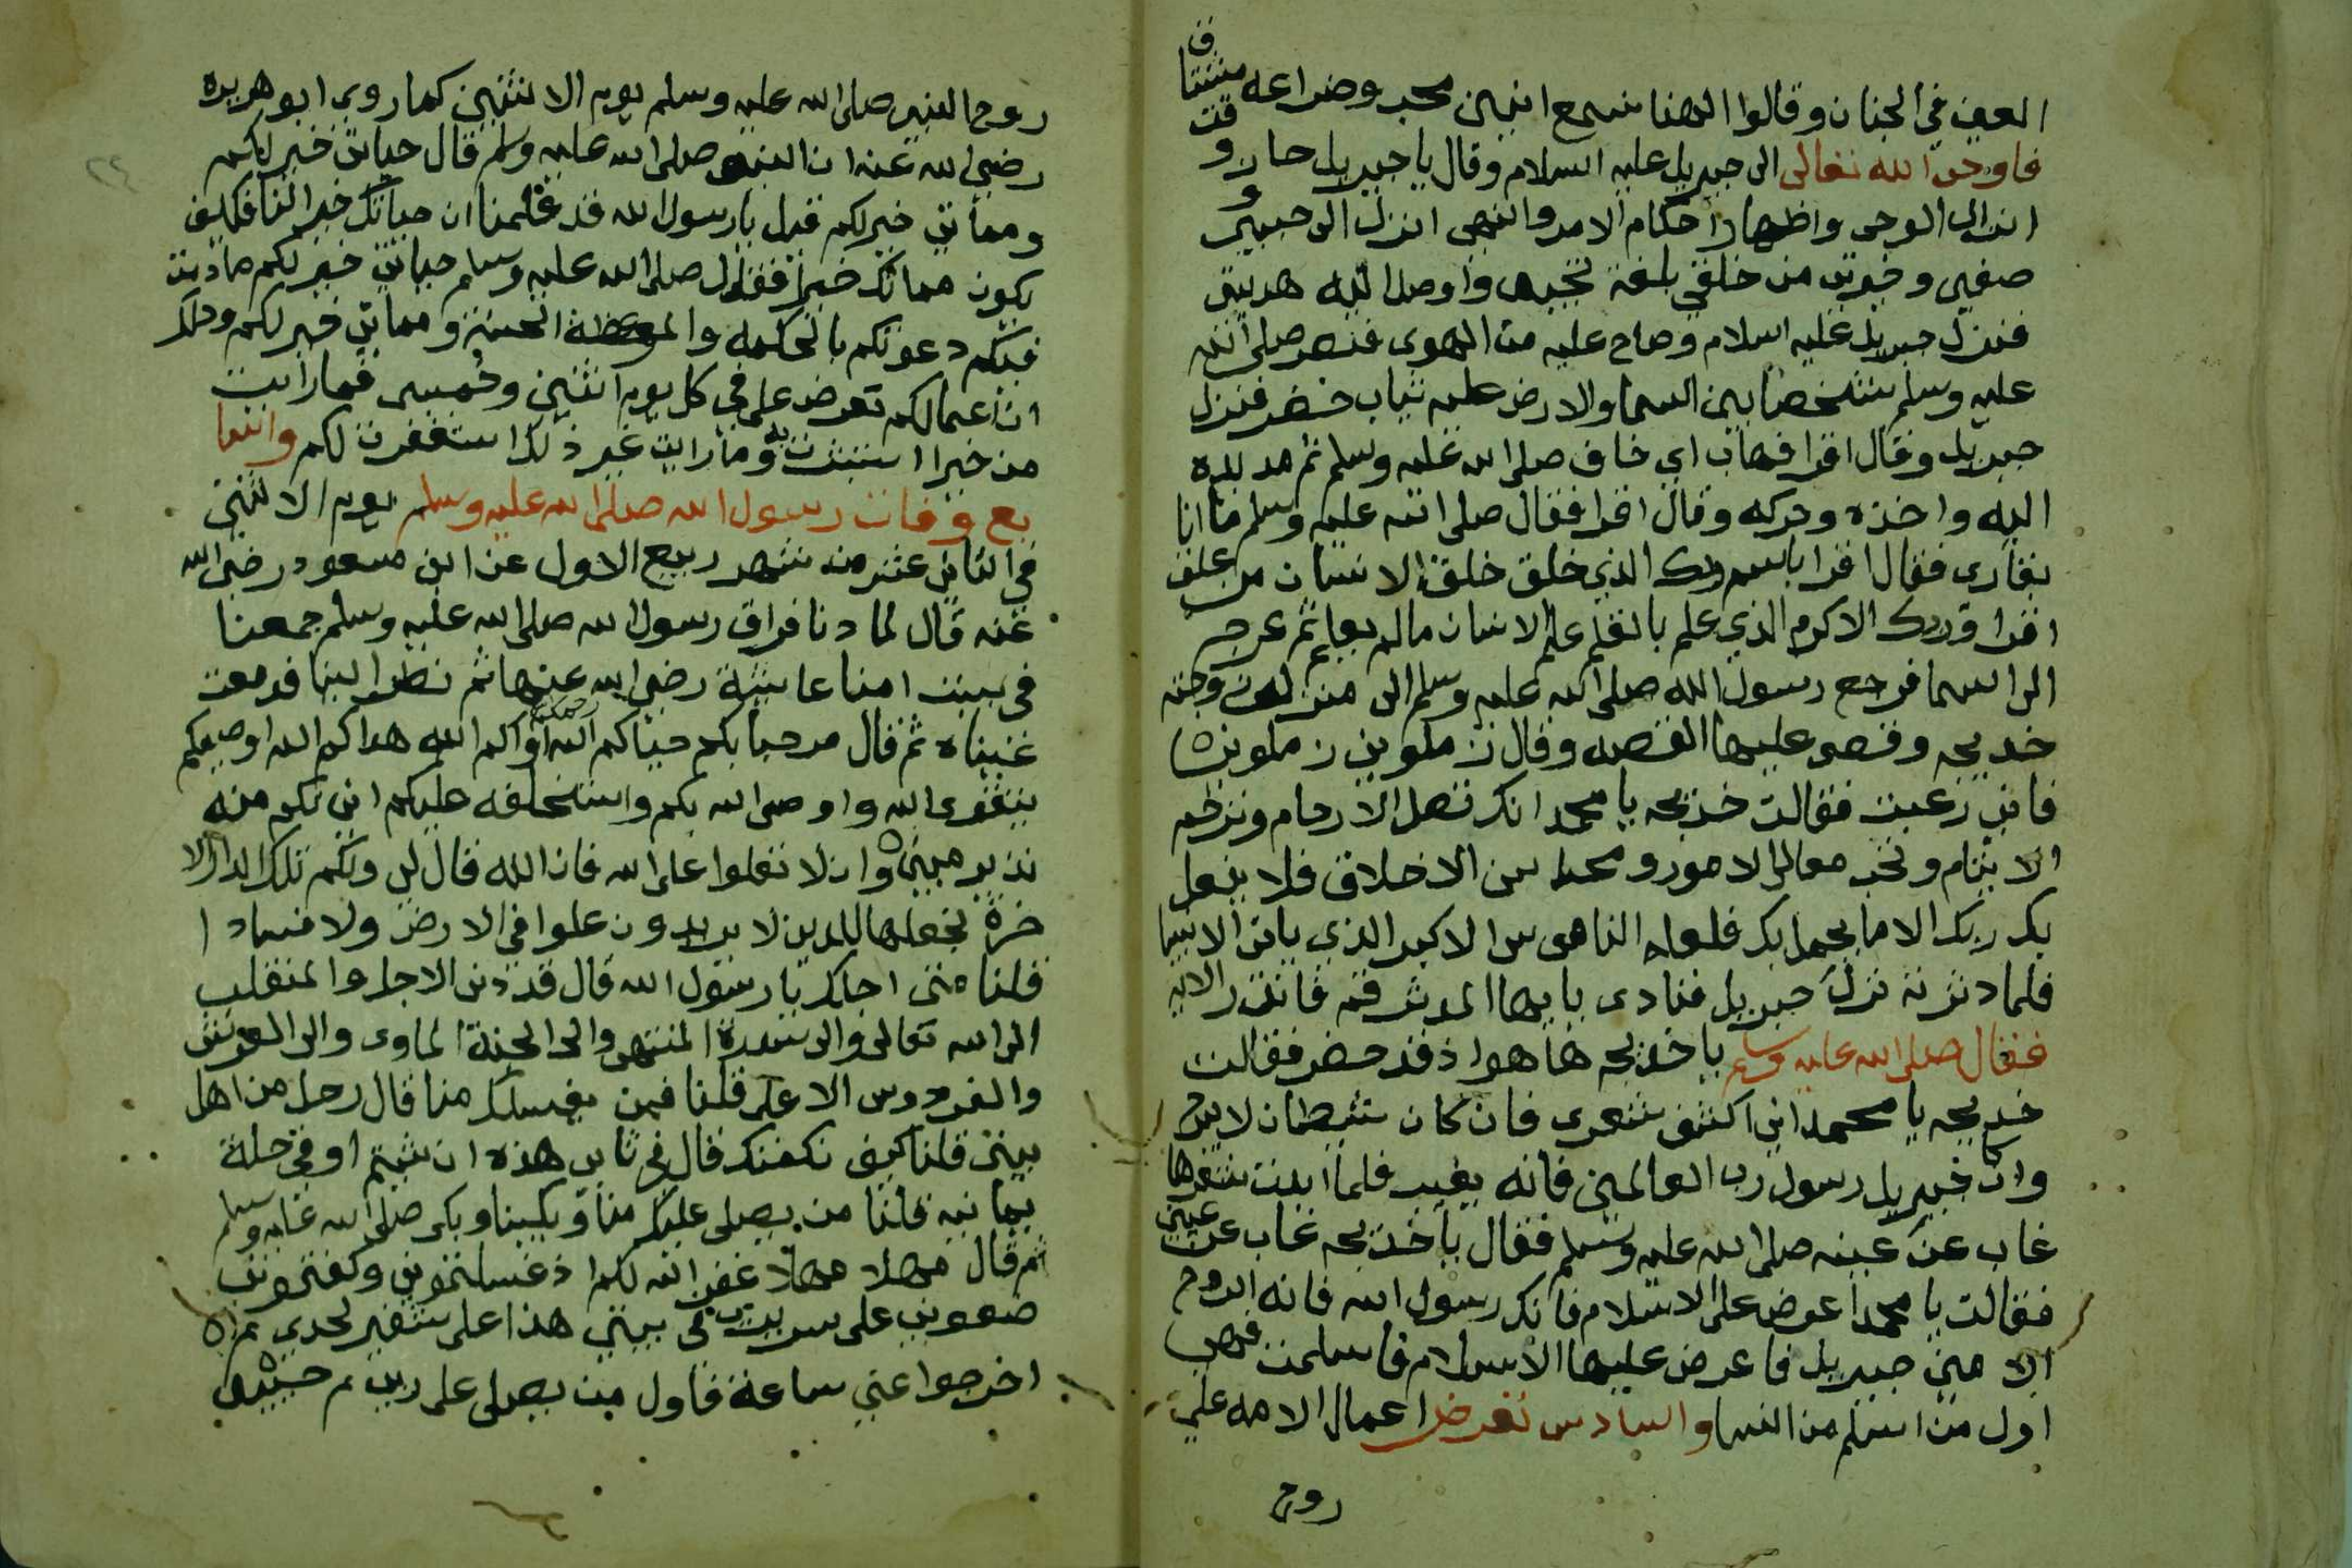 العين في الجنان وقالوا الهنا نسمع انين محب وضراعه مشتاق
فاوحى الله تعالى الى جبريل عليه السلام وقال يا جبريل حار وقت
انزال الوحى واظهار احكام الامر والنهى انزل الى حبيبى و
صفيى وخيرتى من خلقي بلغه تحيتى واوصل اليه هديتى
فنزل جبريل عليه السلام وصاح عليه من الهوى فنصر صلى الله
عليه وسلم شخصا بين السما والارض عليه ثياب خضر فنزل
جبريل وقال اقرا فهاب اي خاف صلى الله عليه وسلم ثم مد يده
اليه واخذه وحركه وقال اقرا فقال صلى الله عليه وسلم ما انا
بقارى فقال اقرا باسم ربك الذي خلق خلق الانسان من علق
اقرا وربك الاكرم الذي علم بالقلم علم الانسان مالم يعلم ثم عرج
الى السما فرجع رسول الله صلى الله عليه وسلم الى منزل وجته
خديجه وقص عليها القصه وقال زملوني زملوني
فاني رعبت فقالت خديجه يا محمد انك تصل الارحام وترحم
الايتام وتحب معالى الامور ومحاسن الاخلاق فلا يفعل
بك ربك الا ما يجمل بك فلعله الناموس الاكبر الذي ياتى الانبيا
فلما دثرته نزل جبريل فنادى يا يها المدثر قم فانذر الايه
فقال صلى الله عليه وسلم يا خديجه ها هوا ذ قد حضر فقالت
خديجه يا محمد اني اكشف شعرى فان كان شيطان لا يبرح
وان كان جبريل رسول رب العالمين فانه يغيب فلما ابدت شعرها
غاب عن عينه صلى الله عليه وسلم فقال يا خديجه غاب عن عيني
فقالت يا محمد اعرض على الاسلام فانك رسول الله فانه الروح
الامين جبريل فاعرض عليها الاسلام فاسلمت فهى
اول من اسلم من النسا والسادس تعرض اعمال الامه على
روح
روح النبى صلى الله عليه وسلم يوم الاثنين كما روى ابو هريره
رضي الله عنه ان النبى صلى الله عليه وسلم قال حياتى خير لكم
ومماتي خير لكم قيل يا رسول الله قد علمنا ان حياتك خير النا فكيف
يكون مماتك خيرا فقال صلى الله عليه وسلم حياتي خير لكم مادمت
فيكم دعوتكم بالحكمه والموعظة الحسنة ومماتي خير لكم وذلكم
ان اعمالكم تعرض على في كل يوم اثنين وخميس فما رايت
من خيرا استبشرت به وما رايت غير ذلك استغفرت لكم والسا
بع وفات رسول الله صلى الله عليه وسلم يوم الاثنين
في الثاني عشر من شهر ربيع الاول عن ابن مسعود رضى الله
عنه قال لما دنا فراق رسول الله صلى الله عليه وسلم جمعنا
في بيت امنا عايشة رضى الله عنها ثم نظر الينا فدمعت
عيناه ثم قال مرحبا بكم حياكم الله اواكم الله هداكم الله اوصيكم
بتقوى الله واوصى الله بكم واستخلفه عليكم اني لكم منه
نذير مبين وان لا تعلوا على الله فان الله قال لي ولكم تلك الدار الا
خرة نجعلها للذين لا يريدون علوا في الارض ولا فسادا
قلنا متى اجلك يا رسول الله قال قد دنى الاجل والمنقلب
الى الله تعالى والى سدرة المنتهى والى الجنة الماوى والى العرش
والفردوس الاعلى قلنا فمن يغسلك منا قال رجل من اهل
بيتى قلنا كيف نكفنك قال في ثيابى هذه ان شيتم او في حلة
يمانيه قلنا من يصلى عليك منا وبكينا وبكى صلى الله عليه وسلم
ثم قال مهلا مهلا غفر الله لكم اذ غسلتموني وكفنتموني
ضعوني على سريرى في بيتي هذا على شفير لحدي ثم
اخرجوا عني ساعة فاول من يصلى على ربى ثم حبيبى